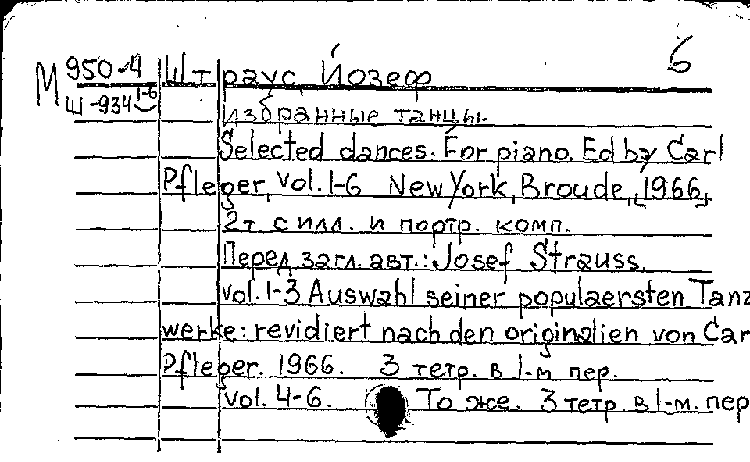 6
М 950-4 Штраус, Йозеф
Ш-934 1-6
Избранные танцы.
Selected dances. For piano. Ed by Carl
Pfleger, vol. 1-6 New York, Broude, [1966]
2т с илл. и портр. комп.
Перед загл. авт.: Josef Strauss.
vol. 1-3 Auswahl seiner populaersten Tanz
werke: revidiert nach den originalien von Car
Pfleger. 1966. 3 тетр. в 1-м пер.
vol. 4-6. То же. 3 тетр. в 1-м. пер